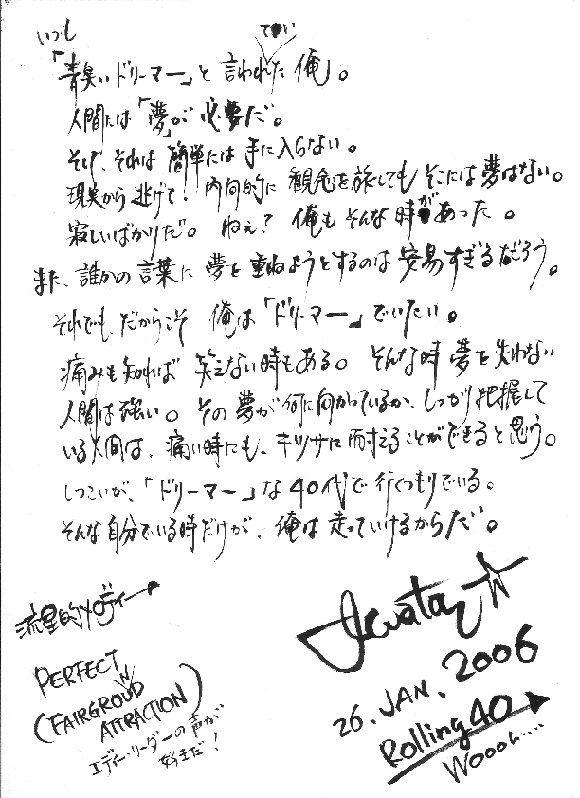 いつも
てい
「青臭いドリーマー」と言われた俺。
人間には「夢」が必要だ。
そして、それは簡単には手に入らない。
現実から逃げて、内向的に観念を旅してもそこには夢はない。
寂しいばかりだ。ねぇ?俺もそんな時があった。
また、誰かの言葉に夢を重ねようとするのは安易すぎるだろう。
それでも、だからこそ 俺は「ドリーマー」でいたい。
痛みも知れば 笑えない時もある。そんな時 夢を失わない
人間は強い。その夢が何に向かっているか、しっかり把握して
いる人間は、痛い時にも、キツサに耐えることができると思う。
しつこいが、「ドリーマー」な40代で行くつもりでいる。
そんな自分でいる時だけが、俺は走っていけるからだ。
流星的メロディー
PERFECT
(FAIRGROUD ATTRACTION)
N
エディ・リーダーの声が
好きだ!
26.JAN.2006
Rolling40
Woooh....